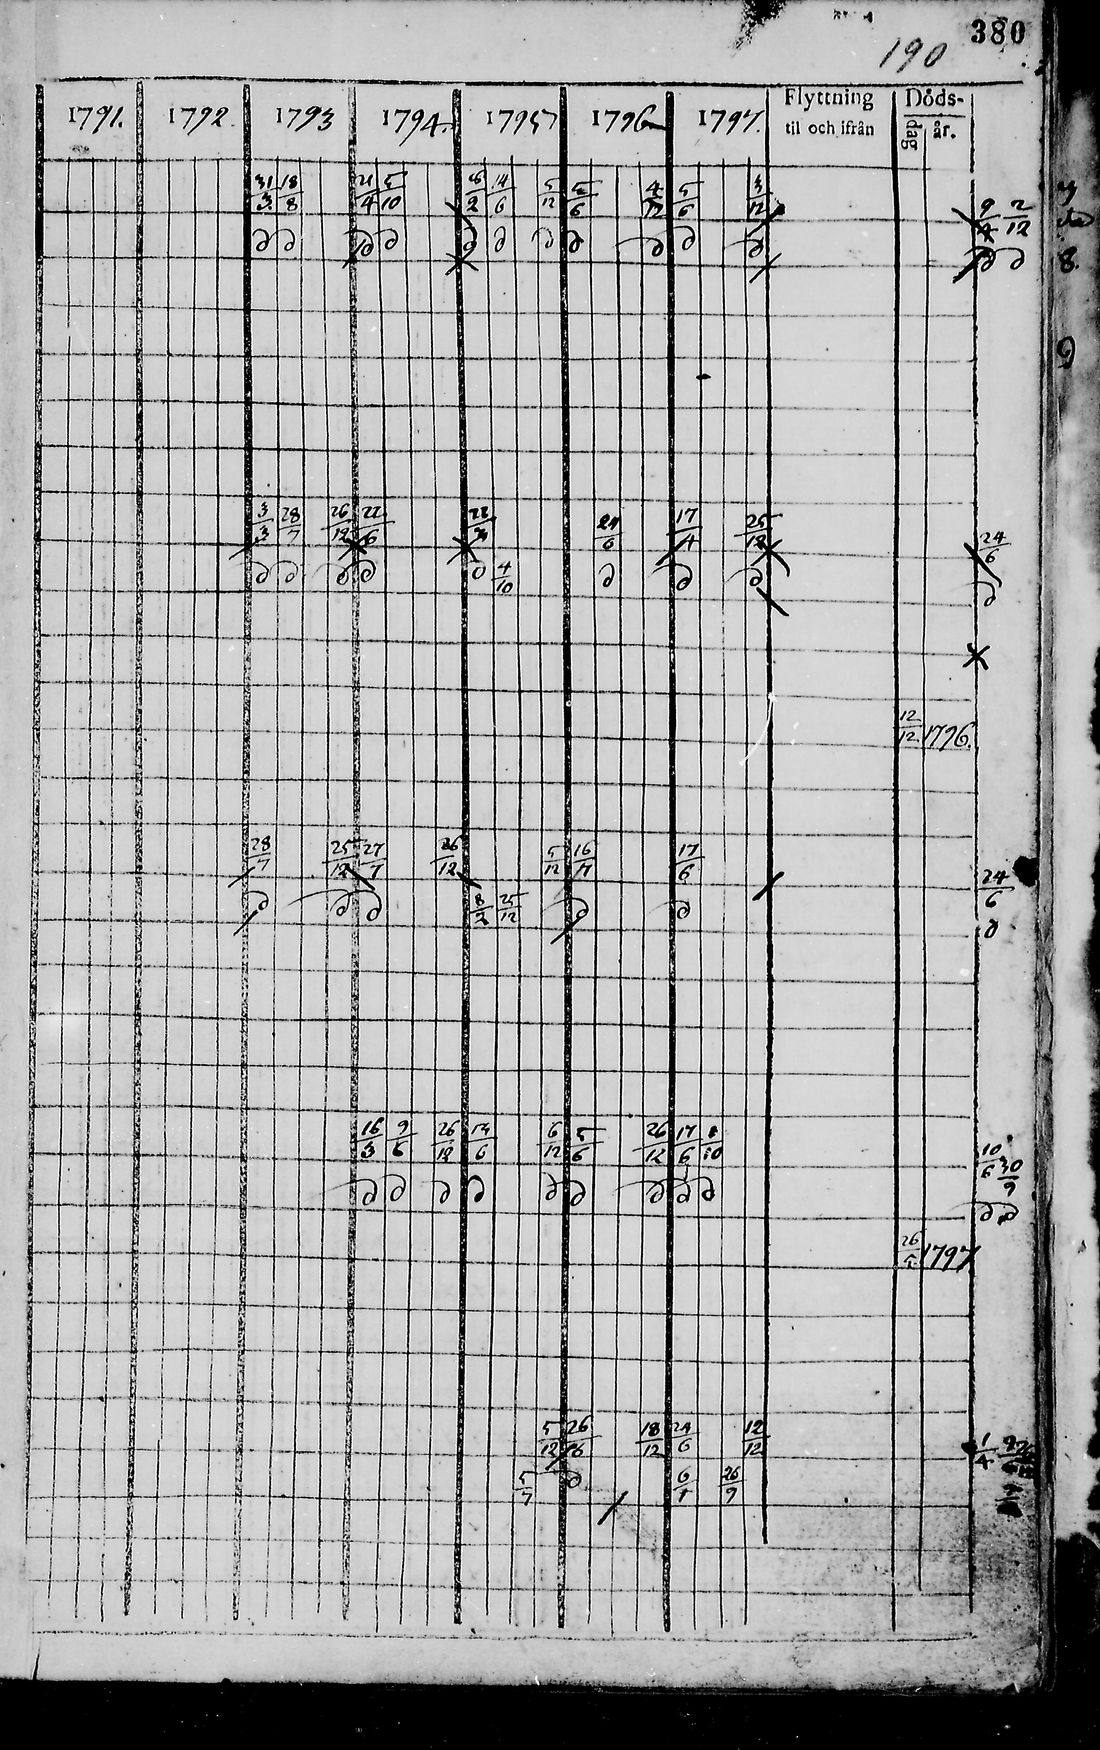 380
190
1791. 1792. 1793 1794. 1795 1796 1797. Flyttning til och ifrån Döds- dag år.
31/3 18/8 21/4 5/10 /2 14/6 5/12 5/6 4/12 5/6 3/12 9/4 2/12
∂ ∂ ∂ ∂ ∂ ∂ ∂ ∂ ∂ ∂ ∂ ∂ ∂
8.
3/3 28/7 26/12 22/6 22/3 24/6 17/4 25/12 24/6
∂ ∂ ∂ ∂ ∂ 4/10 ∂ ∂ ∂ ∂
12/12 1796.
28/7 25/12 27/7 26/12 5/12 16/ 17/6 24/6
∂ ∂ ∂ 8/2 25/12 ∂ ∂ ∂
16/3 9/6 26/12 14/6 6/12 5/6 26/12 17/6 8/10 10/6 30/9
∂ ∂ ∂ ∂ ∂ ∂ ∂ ∂ ∂ ∂ ∂
26/5 1797
5/12 26/ 18/12 24/6 12/12 1/4
5/7 ∂ 6/1 26/9